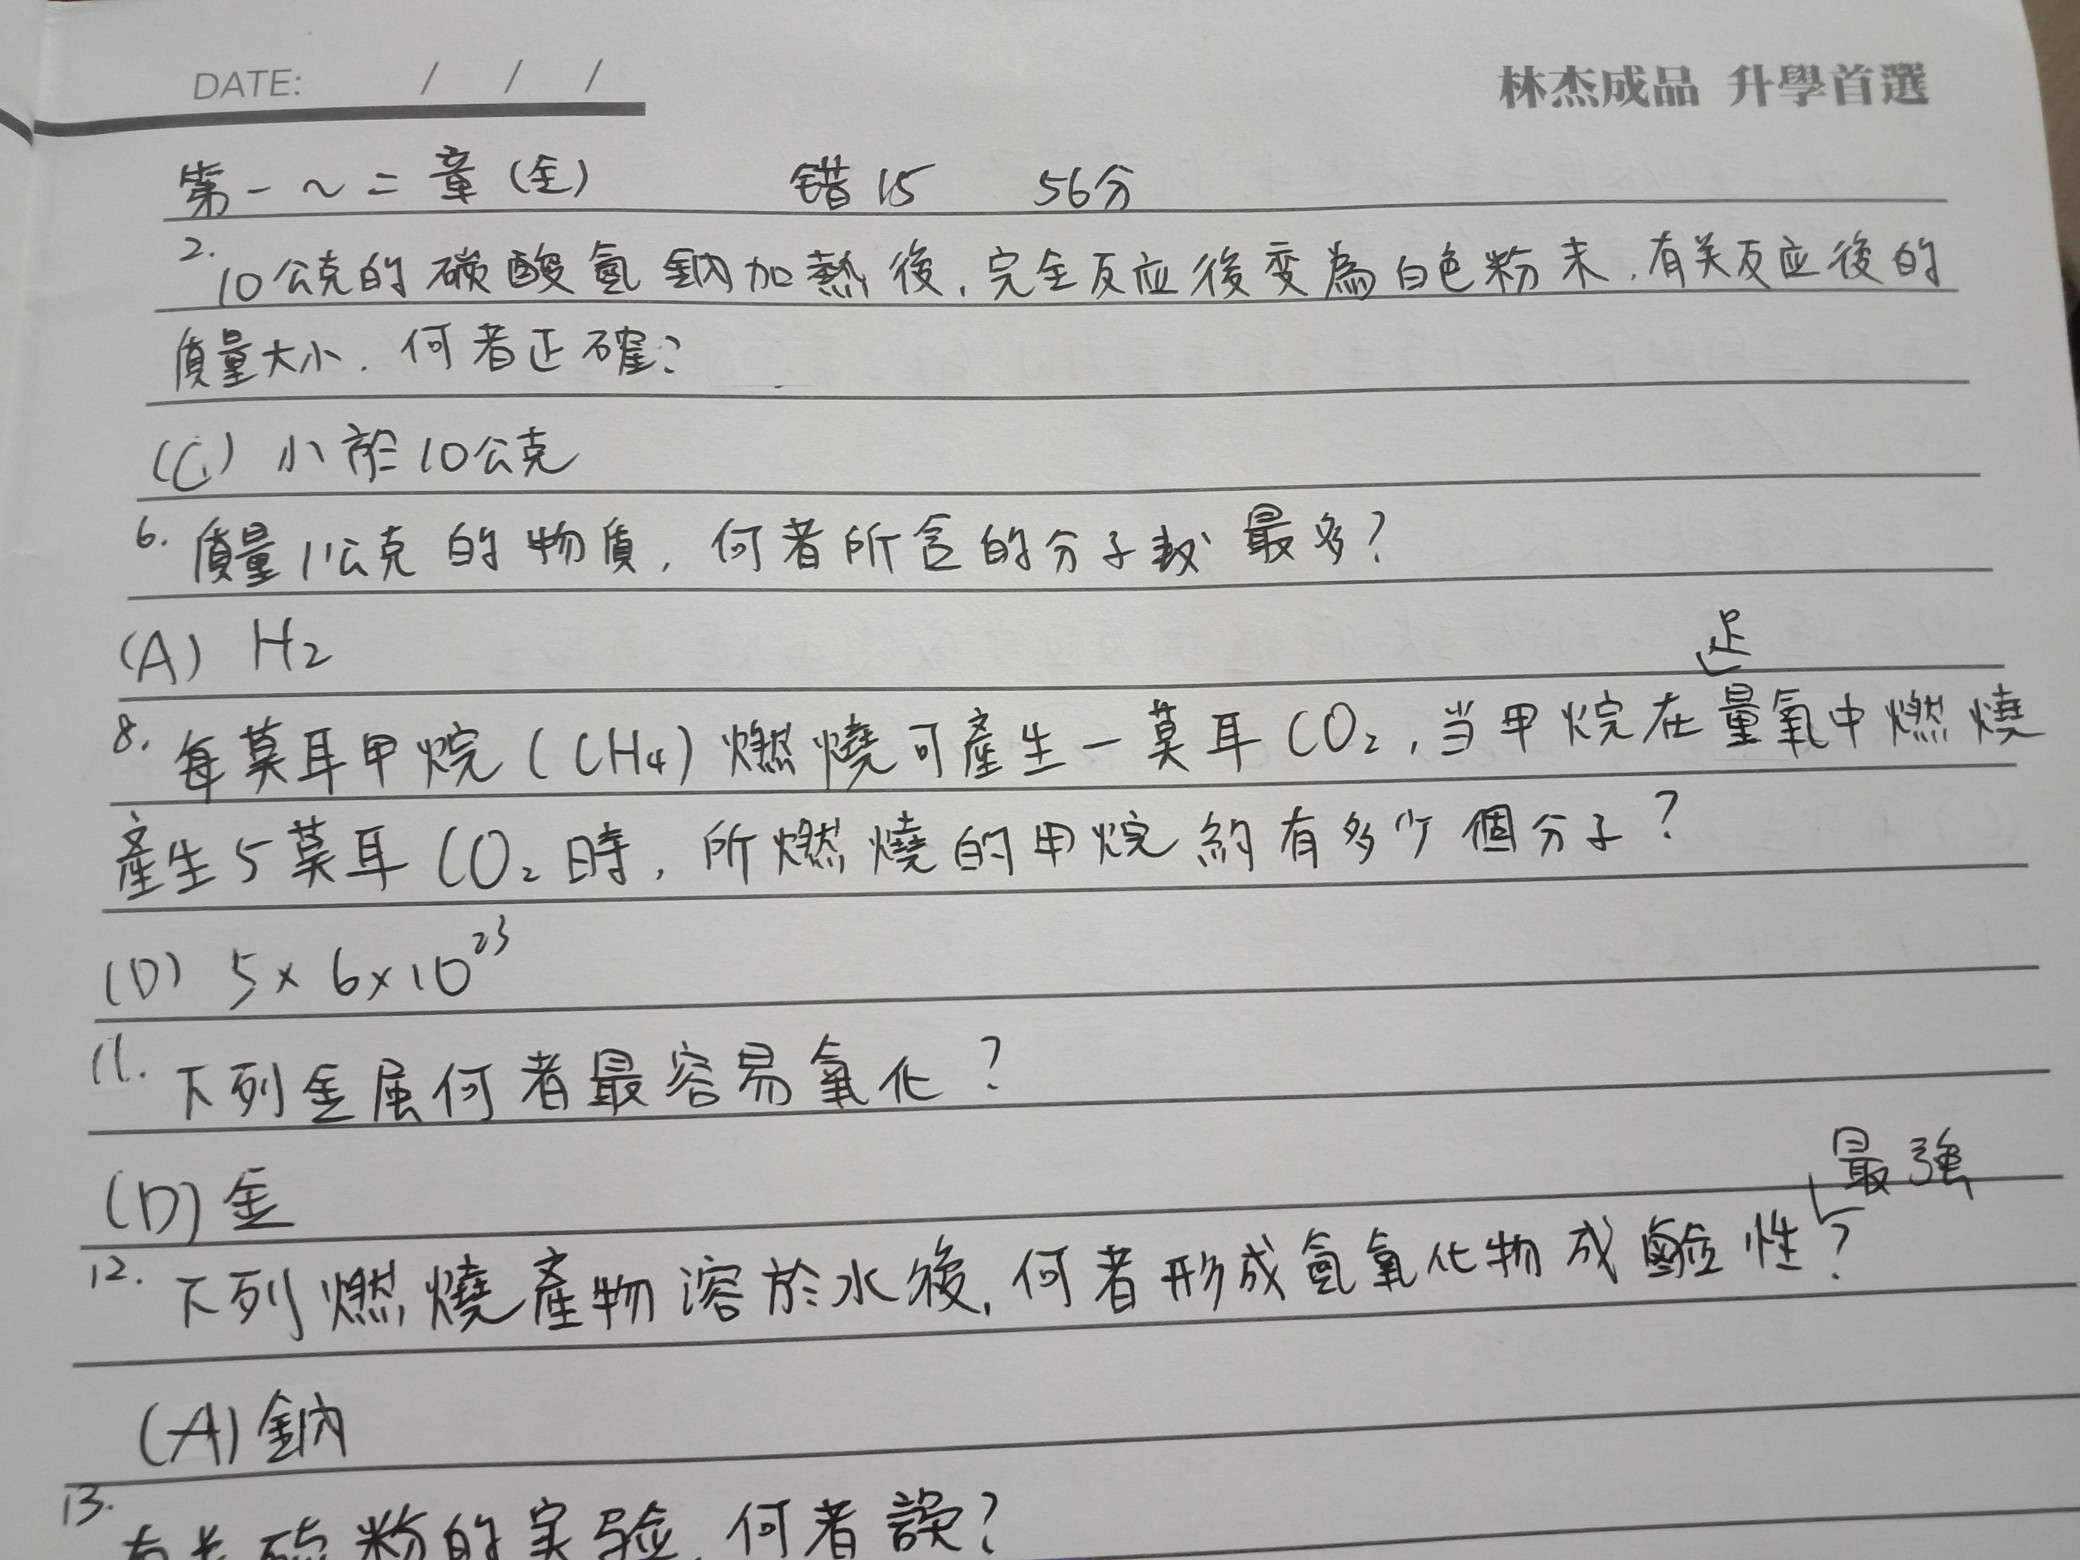 DATE: / / /
林杰成品 升學首選
第一~二章(全) 错15 56分
2. 10公克的碳酸氫鈉加熱後,完全反应後变為白色粉末,有关反应後的
質量大小,何者正確?
(C) 小於10公克
6. 質量1公克的物質,何者所含的分子数最多?
(A) H₂
足
8. 每莫耳甲烷(CH₄)燃燒可產生一莫耳CO₂,当甲烷在量氧中燃燒
產生5莫耳CO₂時,所燃燒的甲烷約有多少個分子?
(D) 5×6×10²³
11. 下列金属何者最容易氧化?
(D) 金
最強
12. 下列燃燒產物溶於水後,何者形成氫氧化物成鹼性?
(A) 鈉
13. 有关硫粉的实验,何者誤?